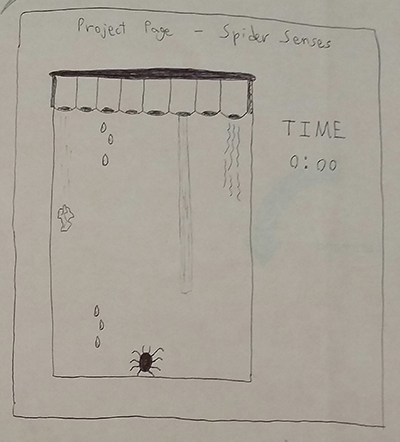 Project Page - Spider Senses
TIME
0:00